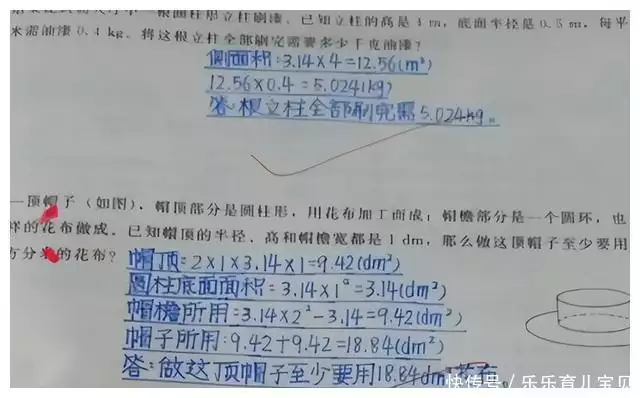 一根圆柱形立柱刷漆。已知立柱的高是4 m，底面半径是0.5 m，每平
米需油漆0.4 kg。将这根立柱全部刷完需要多少千克油漆？
侧面积：3.14×4=12.56(m²)
12.56×0.4=5.024(kg)
答：根立柱全部刷完需5.024kg。
一顶帽子（如图），帽顶部分是圆柱形，用花布加工而成；帽檐部分是一个圆环，也
样的花布做成。已知帽顶的半径、高和帽檐宽都是1 dm，那么做这顶帽子至少要用
方分米的花布？
帽顶：2×1×3.14×1=9.42(dm²)
圆柱底面面积：3.14×1²=3.14(dm²)
帽檐所用：3.14×2²-3.14=9.42(dm²)
帽子所用：9.42+9.42=18.84(dm²)
答：做这顶帽子至少要用18.84dm²花布。
快传号／乐乐育儿宝贝